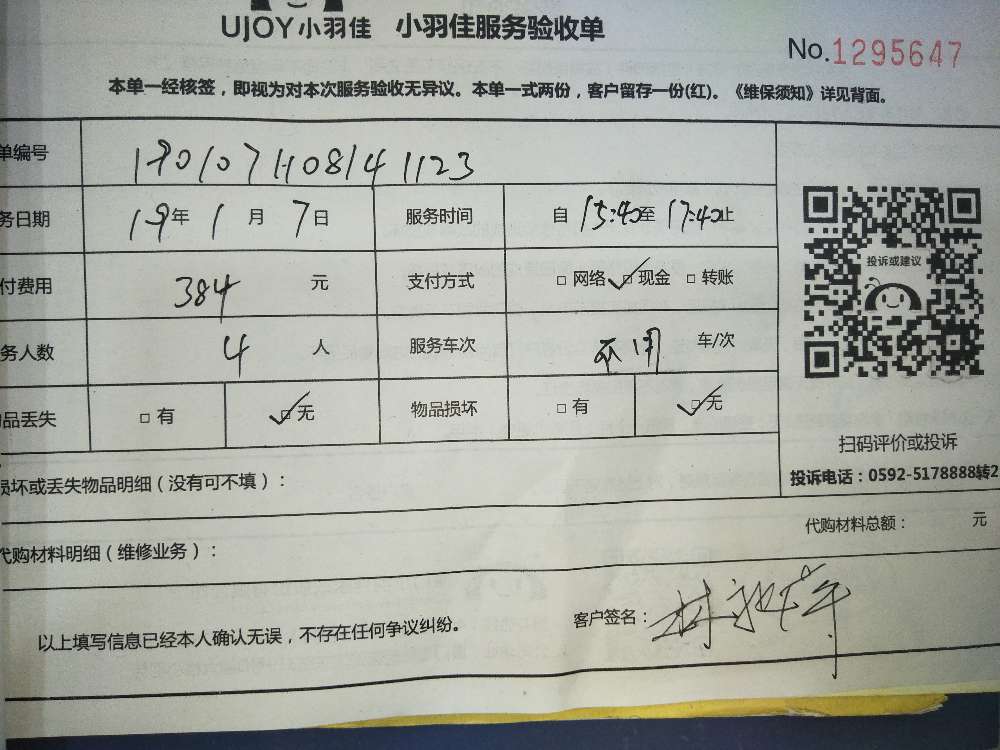 UJOY小羽佳 小羽佳服务验收单
No.1295647
本单一经核签，即视为对本次服务验收无异议。本单一式两份，客户留存一份(红)。《维保须知》详见背面。
单编号 190107110814 1123
务日期 19年 1 月 7日 服务时间 自 15:40至 17:40止
付费用 384 元 支付方式 □ 网络 ☑ 现金 □ 转账
投诉或建议
务人数 4 人 服务车次 不用 车/次
品丢失 □ 有 ☑ 无 物品损坏 □ 有 ☑ 无
扫码评价或投诉
投诉电话：0592-5178888转2
损坏或丢失物品明细（没有可不填）：
代购材料总额： 元
代购材料明细（维修业务）：
以上填写信息已经本人确认无误，不存在任何争议纠纷。
客户签名：